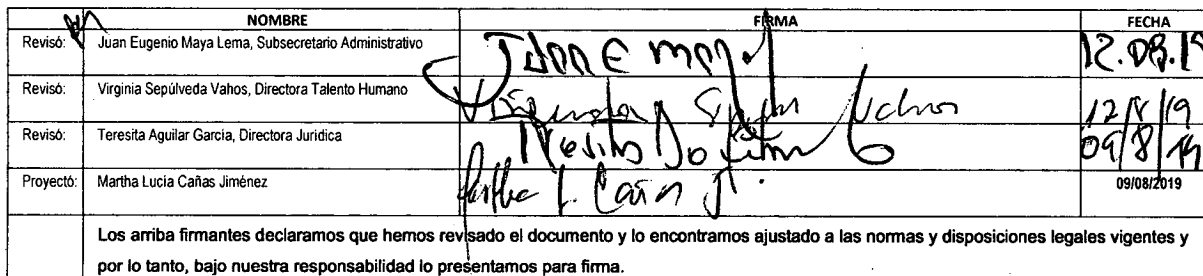 NOMBRE FIRMA FECHA
Revisó: Juan Eugenio Maya Lema, Subsecretario Administrativo 12.08.19
Revisó: Virginia Sepúlveda Vahos, Directora Talento Humano 12/8/19
Revisó: Teresita Aguilar García, Directora Jurídica 09/8/19
Proyectó: Martha Lucía Cañas Jiménez Martha L. Cañas J. 09/08/2019
Los arriba firmantes declaramos que hemos revisado el documento y lo encontramos ajustado a las normas y disposiciones legales vigentes y
por lo tanto, bajo nuestra responsabilidad lo presentamos para firma.